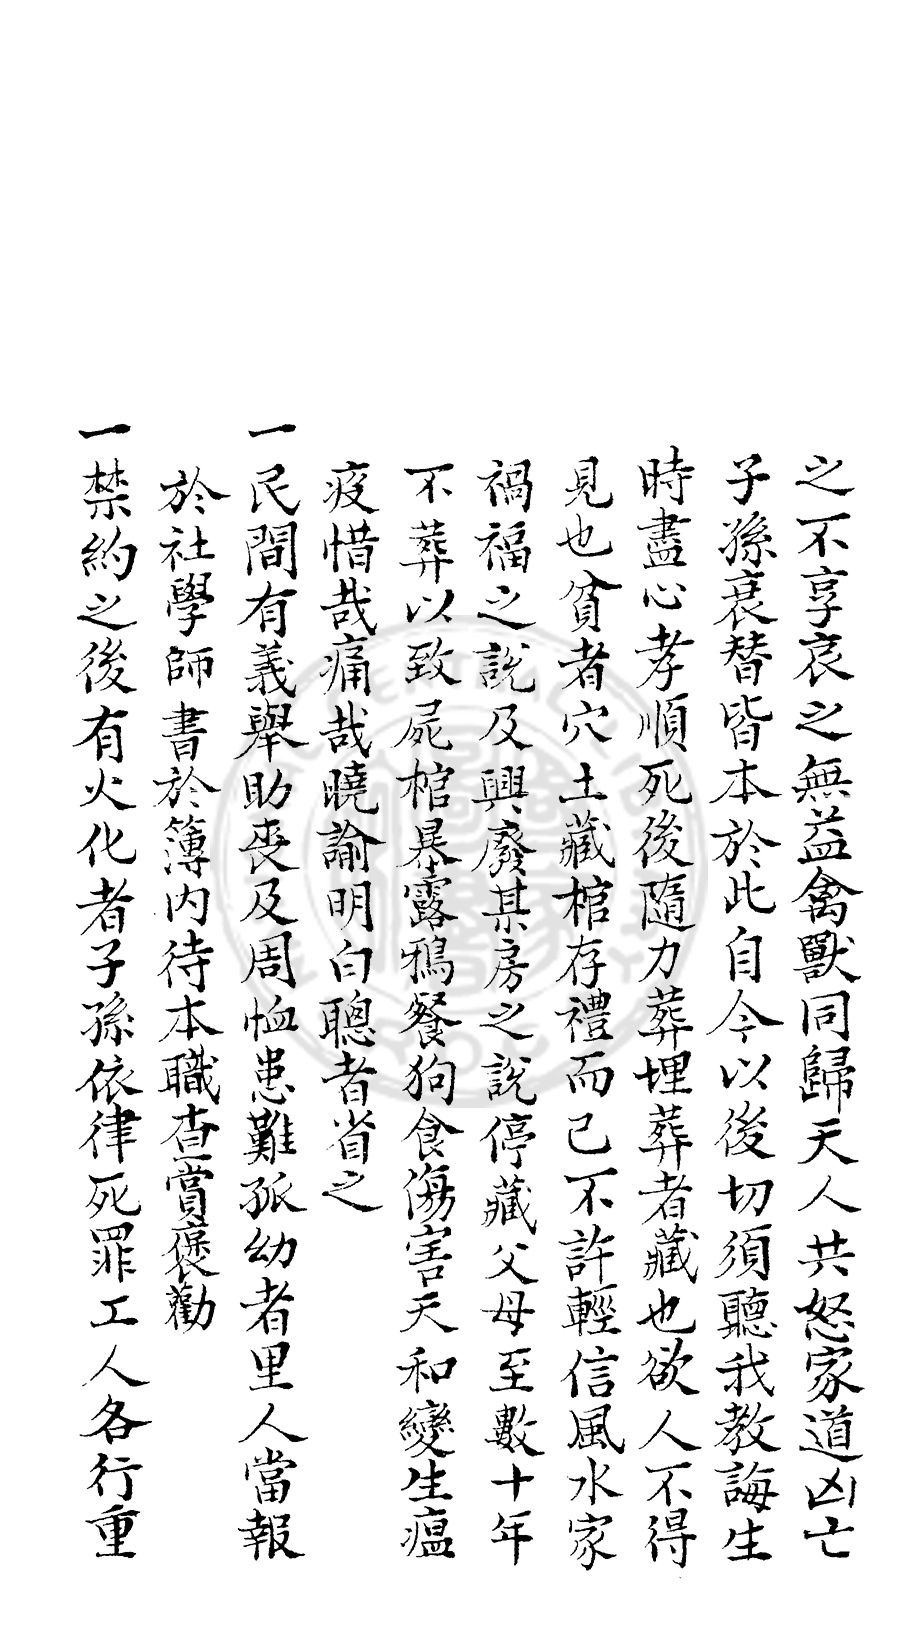 之不享哀之無益禽獸同歸天人共怒家道凶亡
子孫衰替皆本於此自今以後切須聽我教誨生
時盡心孝順死後隨力葬埋葬者藏也欲人不得
見也貧者穴土藏棺存禮而已不許輕信風水家
禍福之說及興廢某房之說停藏父母至數十年
不葬以致屍棺暴露鴉餐狗食傷害天和變生瘟
疫惜哉痛哉曉諭明白聰者省之
一民間有義舉助喪及周恤患難孤幼者里人當報
於社學師書於簿內待本職查賞褒勸
一禁約之後有火化者子孫依律死罪工人各行重